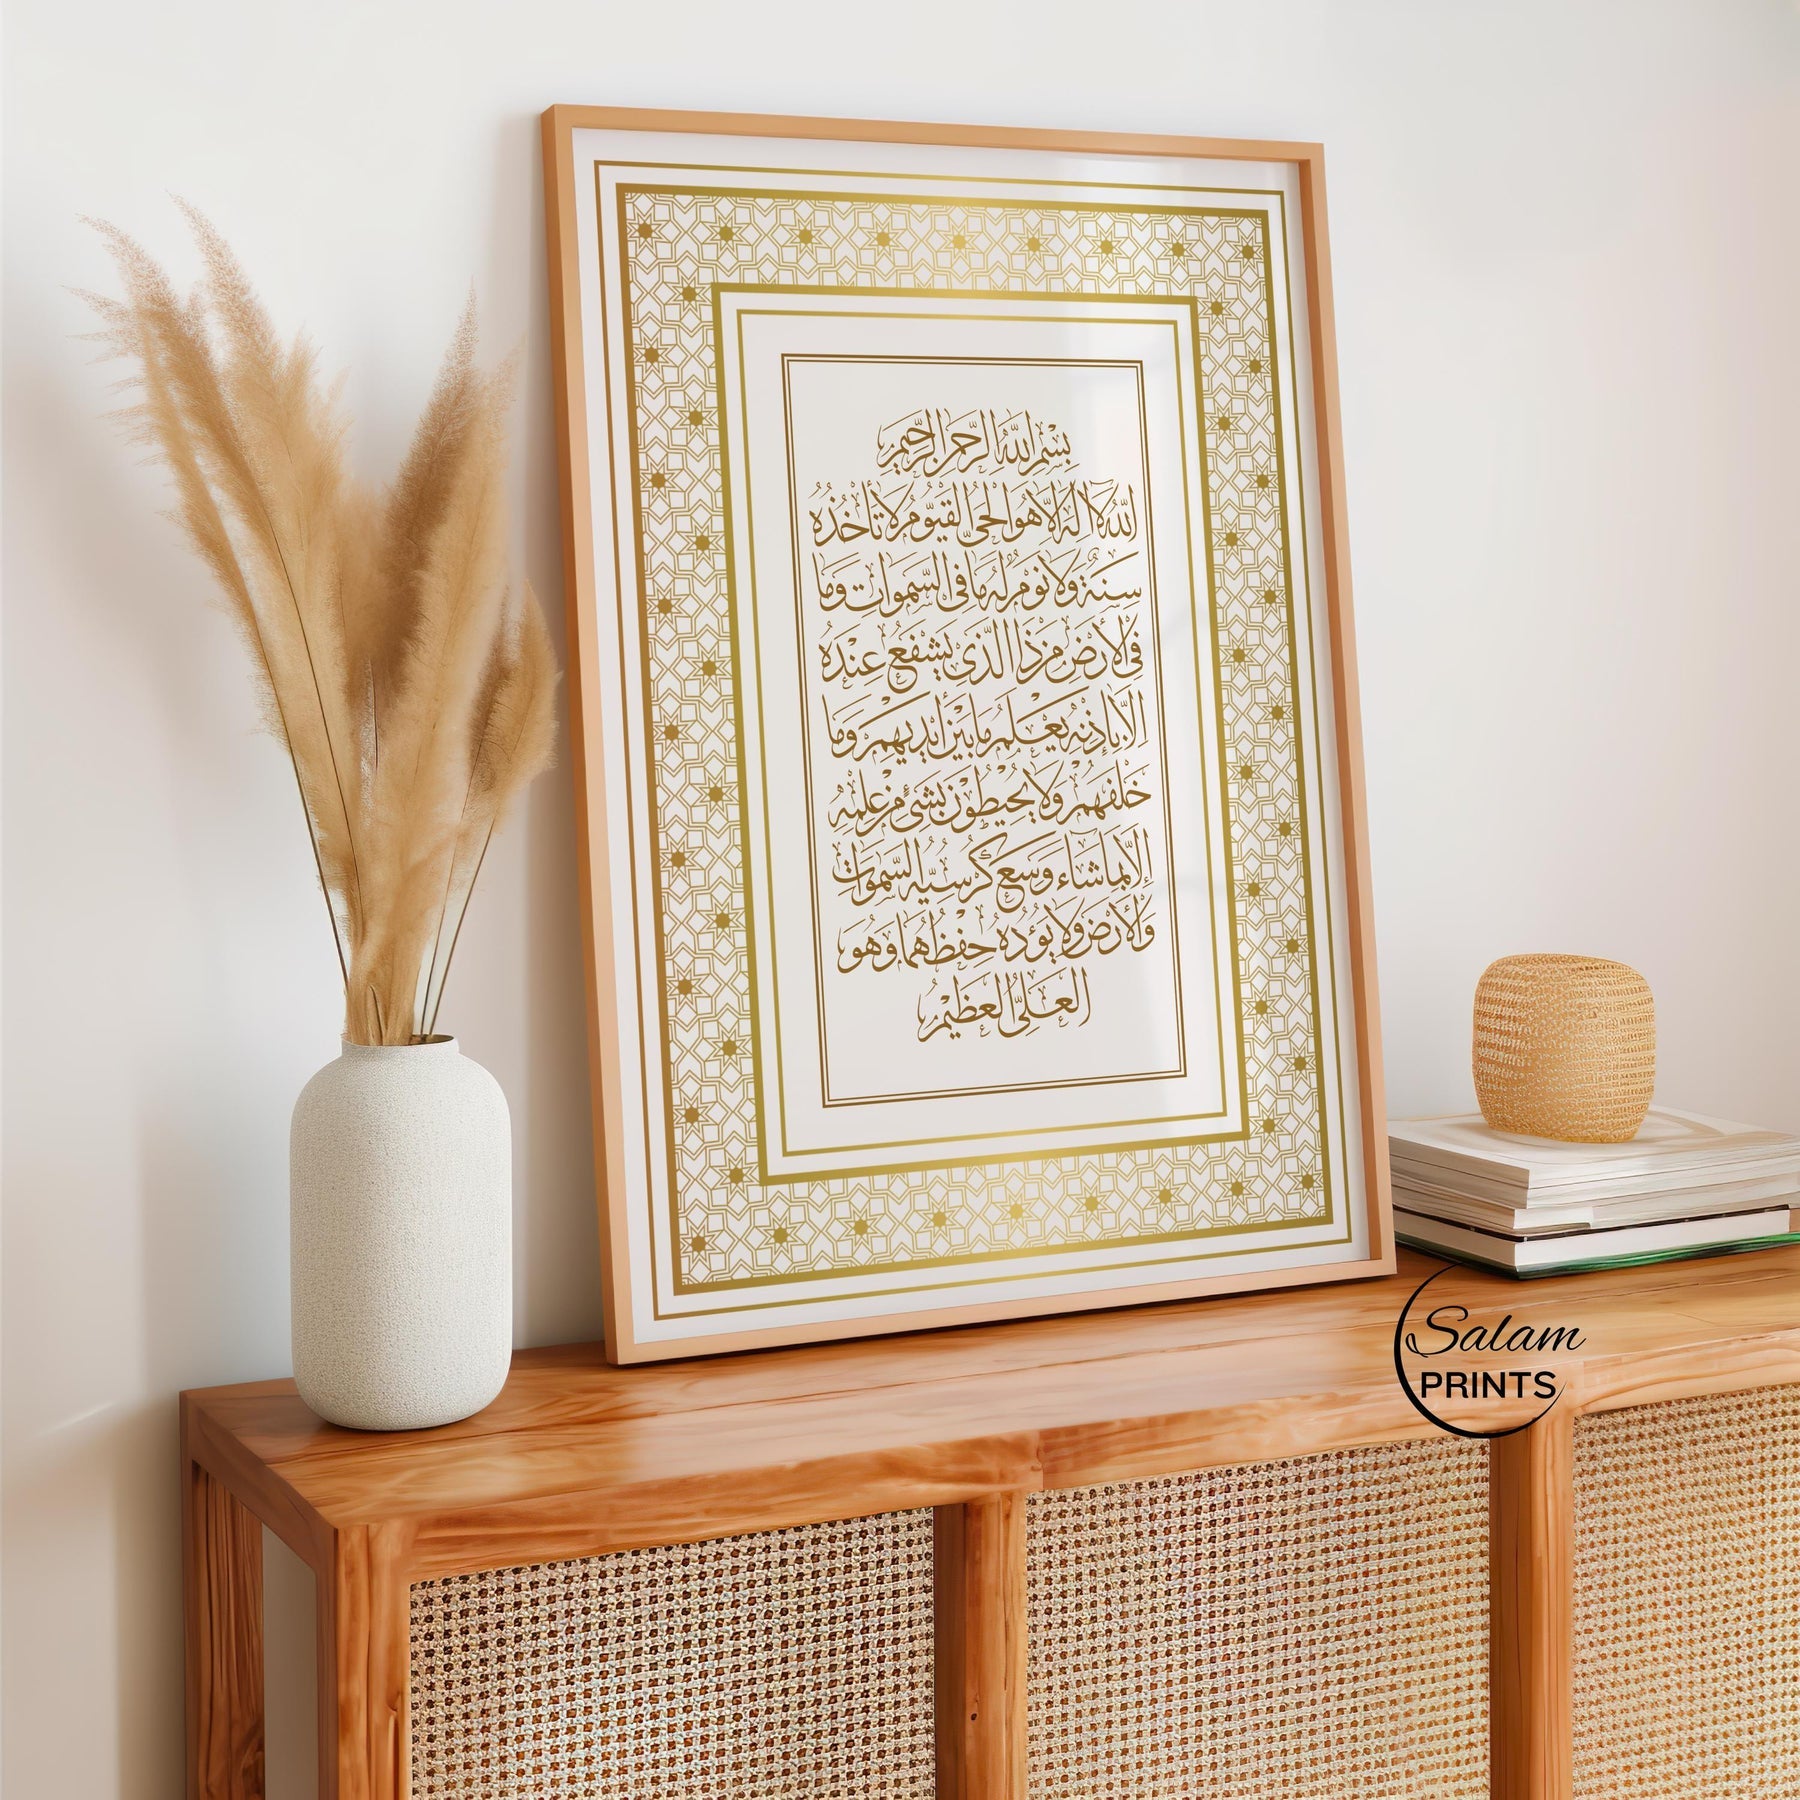 بِسْمِ اللَّهِ الرَّحْمَنِ الرَّحِيمِ
اللَّهُ لَا إِلَهَ إِلَّا هُوَ الْحَيُّ الْقَيُّومُ لَا تَأْخُذُهُ
سِنَةٌ وَلَا نَوْمٌ لَهُ مَا فِي السَّمَوَاتِ وَمَا
فِي الْأَرْضِ مَنْ ذَا الَّذِي يَشْفَعُ عِنْدَهُ
إِلَّا بِإِذْنِهِ يَعْلَمُ مَا بَيْنَ أَيْدِيهِمْ وَمَا
خَلْفَهُمْ وَلَا يُحِيطُونَ بِشَيْءٍ مِنْ عِلْمِهِ
إِلَّا بِمَا شَاءَ وَسِعَ كُرْسِيُّهُ السَّمَوَاتِ
وَالْأَرْضَ وَلَا يَؤُدُهُ حِفْظُهُمَا وَهُوَ
الْعَلِيُّ الْعَظِيمُ
Salam
PRINTS